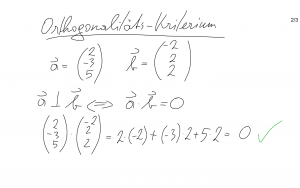 Orthogonalitäts-Kriterium
2/3
a⃗ = (2 -3 5) b⃗ = (-2 2 2)
a⃗ ⊥ b⃗ ⟺ a⃗ · b⃗ = 0
(2 -3 5) · (-2 2 2) = 2·(-2)+(-3)·2+5·2 = 0 ✓